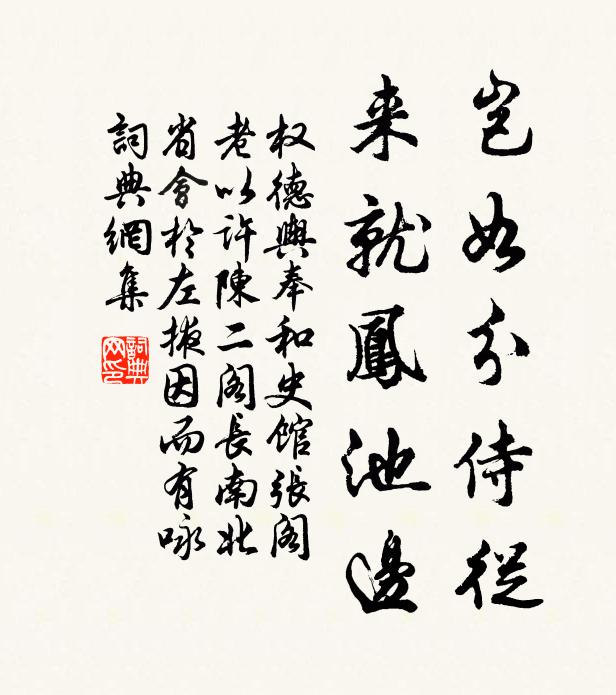 豈如分侍從
来就鳳池邊
权德輿奉和史馆張阁
老以许陳二阁長南北
省會於左掖因而有咏
詞典網集
詞典
网印